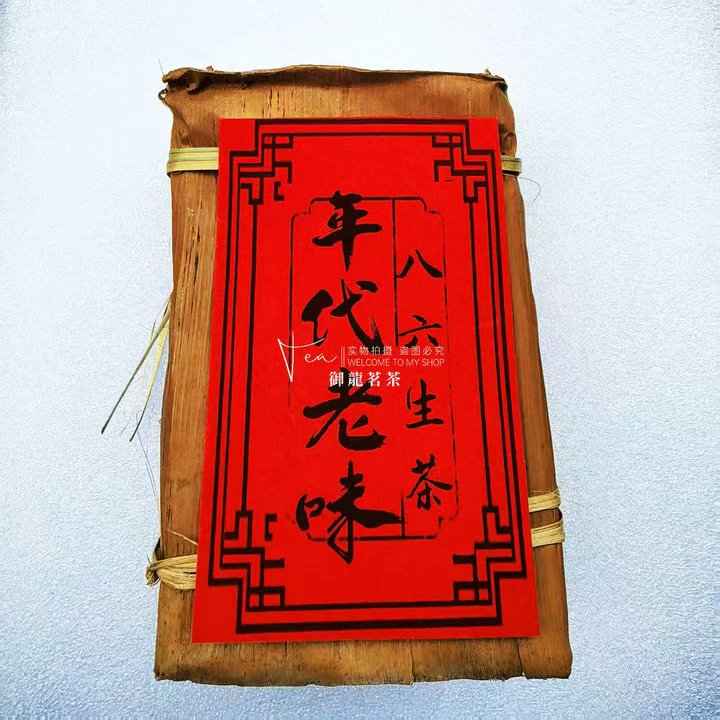 八六生茶
年代老味
Tea
实物拍摄 盗图必究
WELCOME TO MY SHOP
御龍茗茶